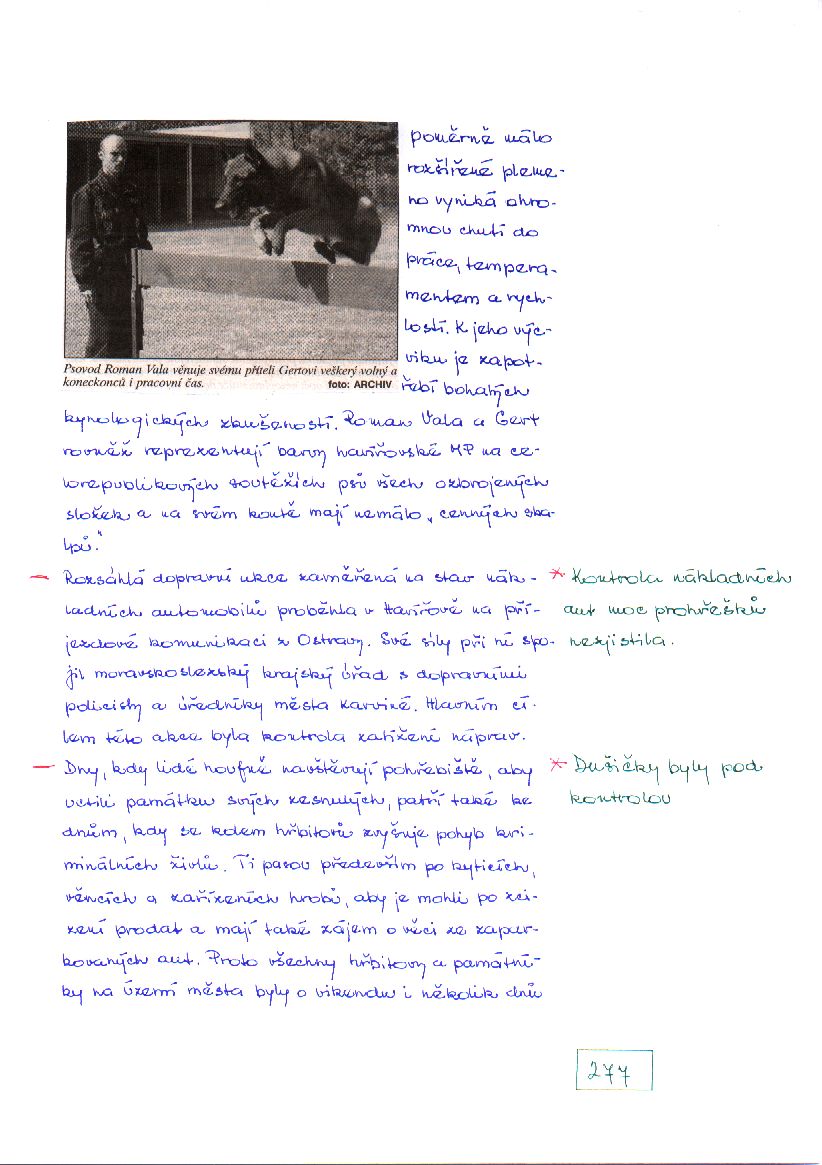 poměrně málo
rozšířené pleme-
no vyniká ohro-
mnou chutí do
práce, tempera-
mentem a rych-
lostí. K jeho výc-
viku je zapot-
řebí bohatých
Psovod Roman Vala věnuje svému příteli Gertovi veškerý volný a
koneckonců i pracovní čas.
foto: ARCHIV
kynologických zkušeností. Roman Vala a Gert
rovněž reprezentují barvy havířovské MP na ce-
lorepublikových soutěžích psů všech ozbrojených
složek a na svém kontě mají nemálo „cenných ska-
lpů."
— Rozsáhlá dopravní akce zaměřená na stav nák-
ladních automobilů proběhla v Havířově na pří-
jezdové komunikaci z Ostravy. Své síly při ní spo-
jil moravskoslezský krajský úřad s dopravními
policisty a úředníky města Karviné. Hlavním cí-
lem této akce byla kontrola zatížení náprav.
* Kontrola nákladních
aut moc prohřešků
nezjistila.
— Dny, kdy lidé houfně navštěvují pohřebiště, aby
uctili památku svých zesnulých, patří také ke
dnům, kdy se kolem hřbitorů zvyšuje pohyb kri-
minálních živlů. Ti pasou především po kyticích,
věncích a zařízeních hrobů, aby je mohli po zci-
zení prodat a mají také zájem o věci ze zapar-
kovaných aut. Proto všechny hřbitovy a památní-
ky na území města byly o víkendu i několik dnů
* Dušičky byly pod
kontrolou
277